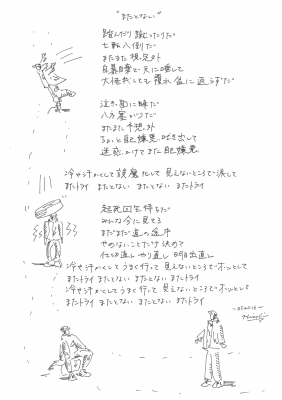 "またとない"
踏んだり 蹴ったりだ
七転八倒だ
またまた想定外
自暴自棄で 天に唾して
大怪我しても 覆水 盆に 返らずだ
泣き面に蜂だ
八方塞がりだ
またまた予想外
ちょいと自己嫌悪 吐き出して
迷惑かけてまた自己嫌悪
冷や汗かくして 誤魔化して 見えないところで涙して
またトライ またとない またとない またトライ
起死回生待ちだ
みんな今に見てろ
まだまだ道の途中
やめないことだけ決めて
仕切直し やり直し 出直し
冷や汗かくして うまく行って 見えないところでホッとして
またトライ またとない またとない またトライ
冷や汗かくして うまく行って 見えないところでホッとして
またトライ またとない またとない またトライ